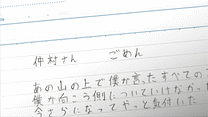 仲村さん　ごめん
あの山の上で僕が言ったすべての
僕が向こう側についていけなかっ
今さらになってやっと気付いた